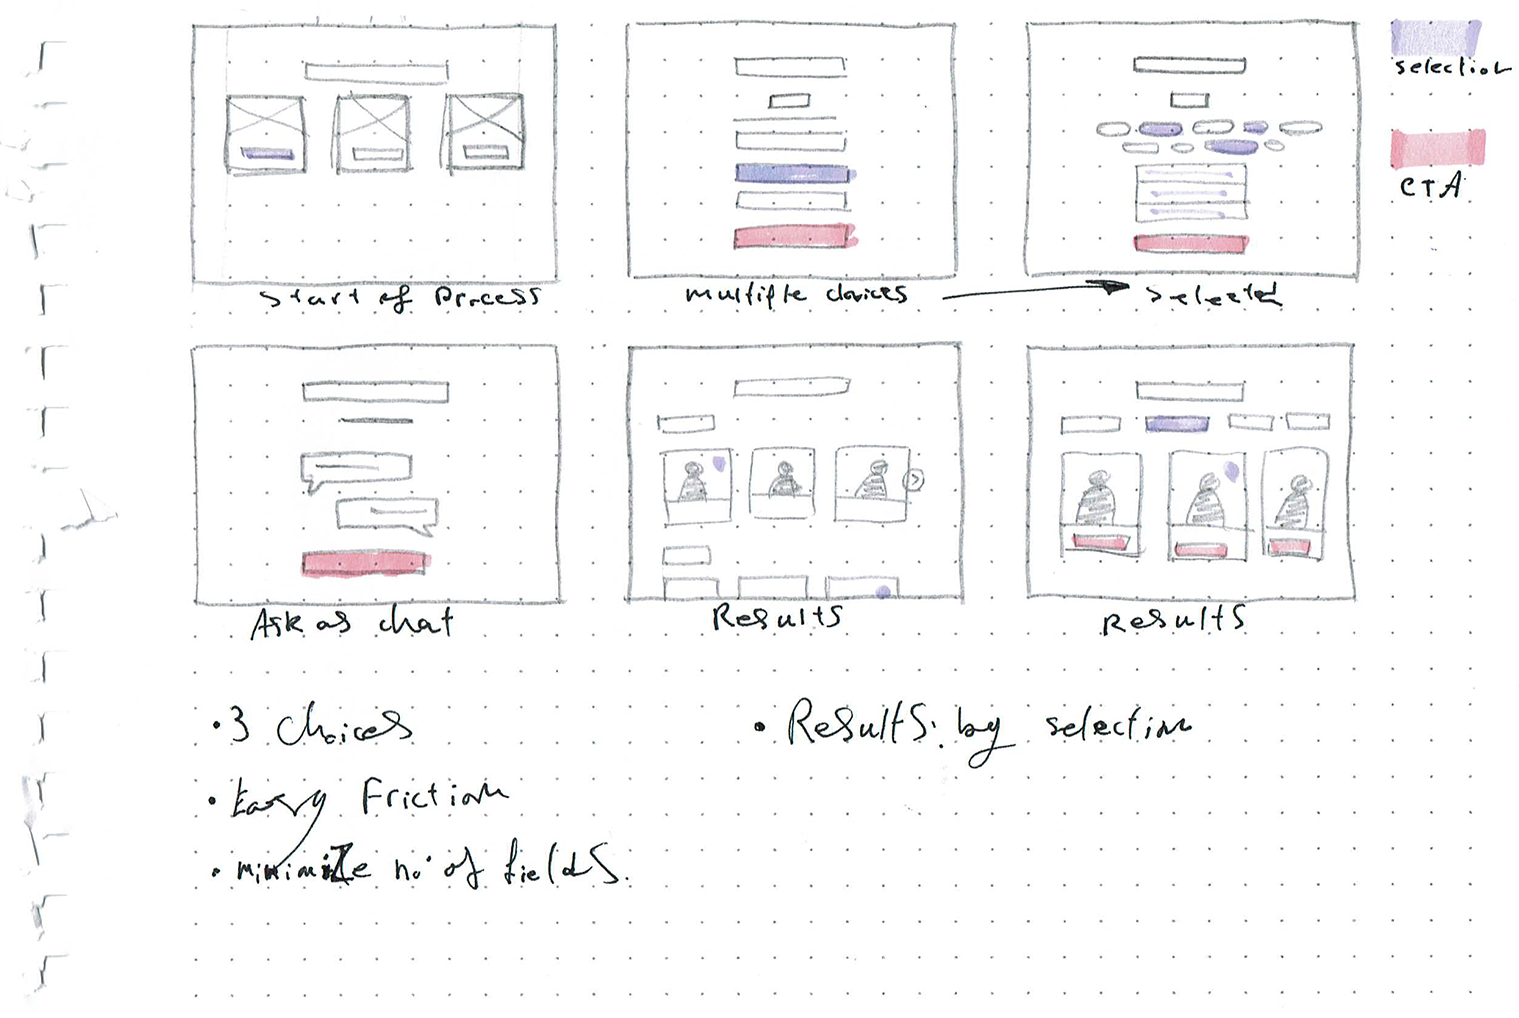 selection
CTA
Start of Process
multiple choices
selected
Ask as chat
Results
Results
• 3 choices
• Easy Friction
• minimiZe no. of fields.
• Results. by selection